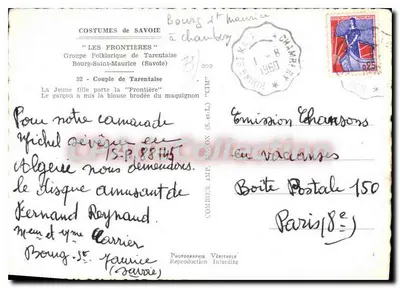 COSTUMES DE SAVOIE
"LES FRONTIÈRES"
Groupe Folklorique de Tarentaise
Bourg-Saint-Maurice (Savoie)
32 - Couple de Tarentaise
La Jeune fille porte la "Frontière"
Le garçon a mis la blouse brodée du maquignon
Bourg St Maurice
à Chambery
CHAMBERY
1 - 8
1960
0,25
Pour notre camarade
Michel
S.P. 88445
Algérie nous demandons
le disque amusant de
Fernand Reynaud.
Mr et Mme Carrier
Bourg-St-Maurice
(Savoie)
COMBIER IMP. MACON (S.-et-L.) "CIM"
Emission Chansons
en vacances
Boite Postale 150
Paris (8e)
PHOTOGRAPHIE VÉRITABLE
Reproduction Interdite